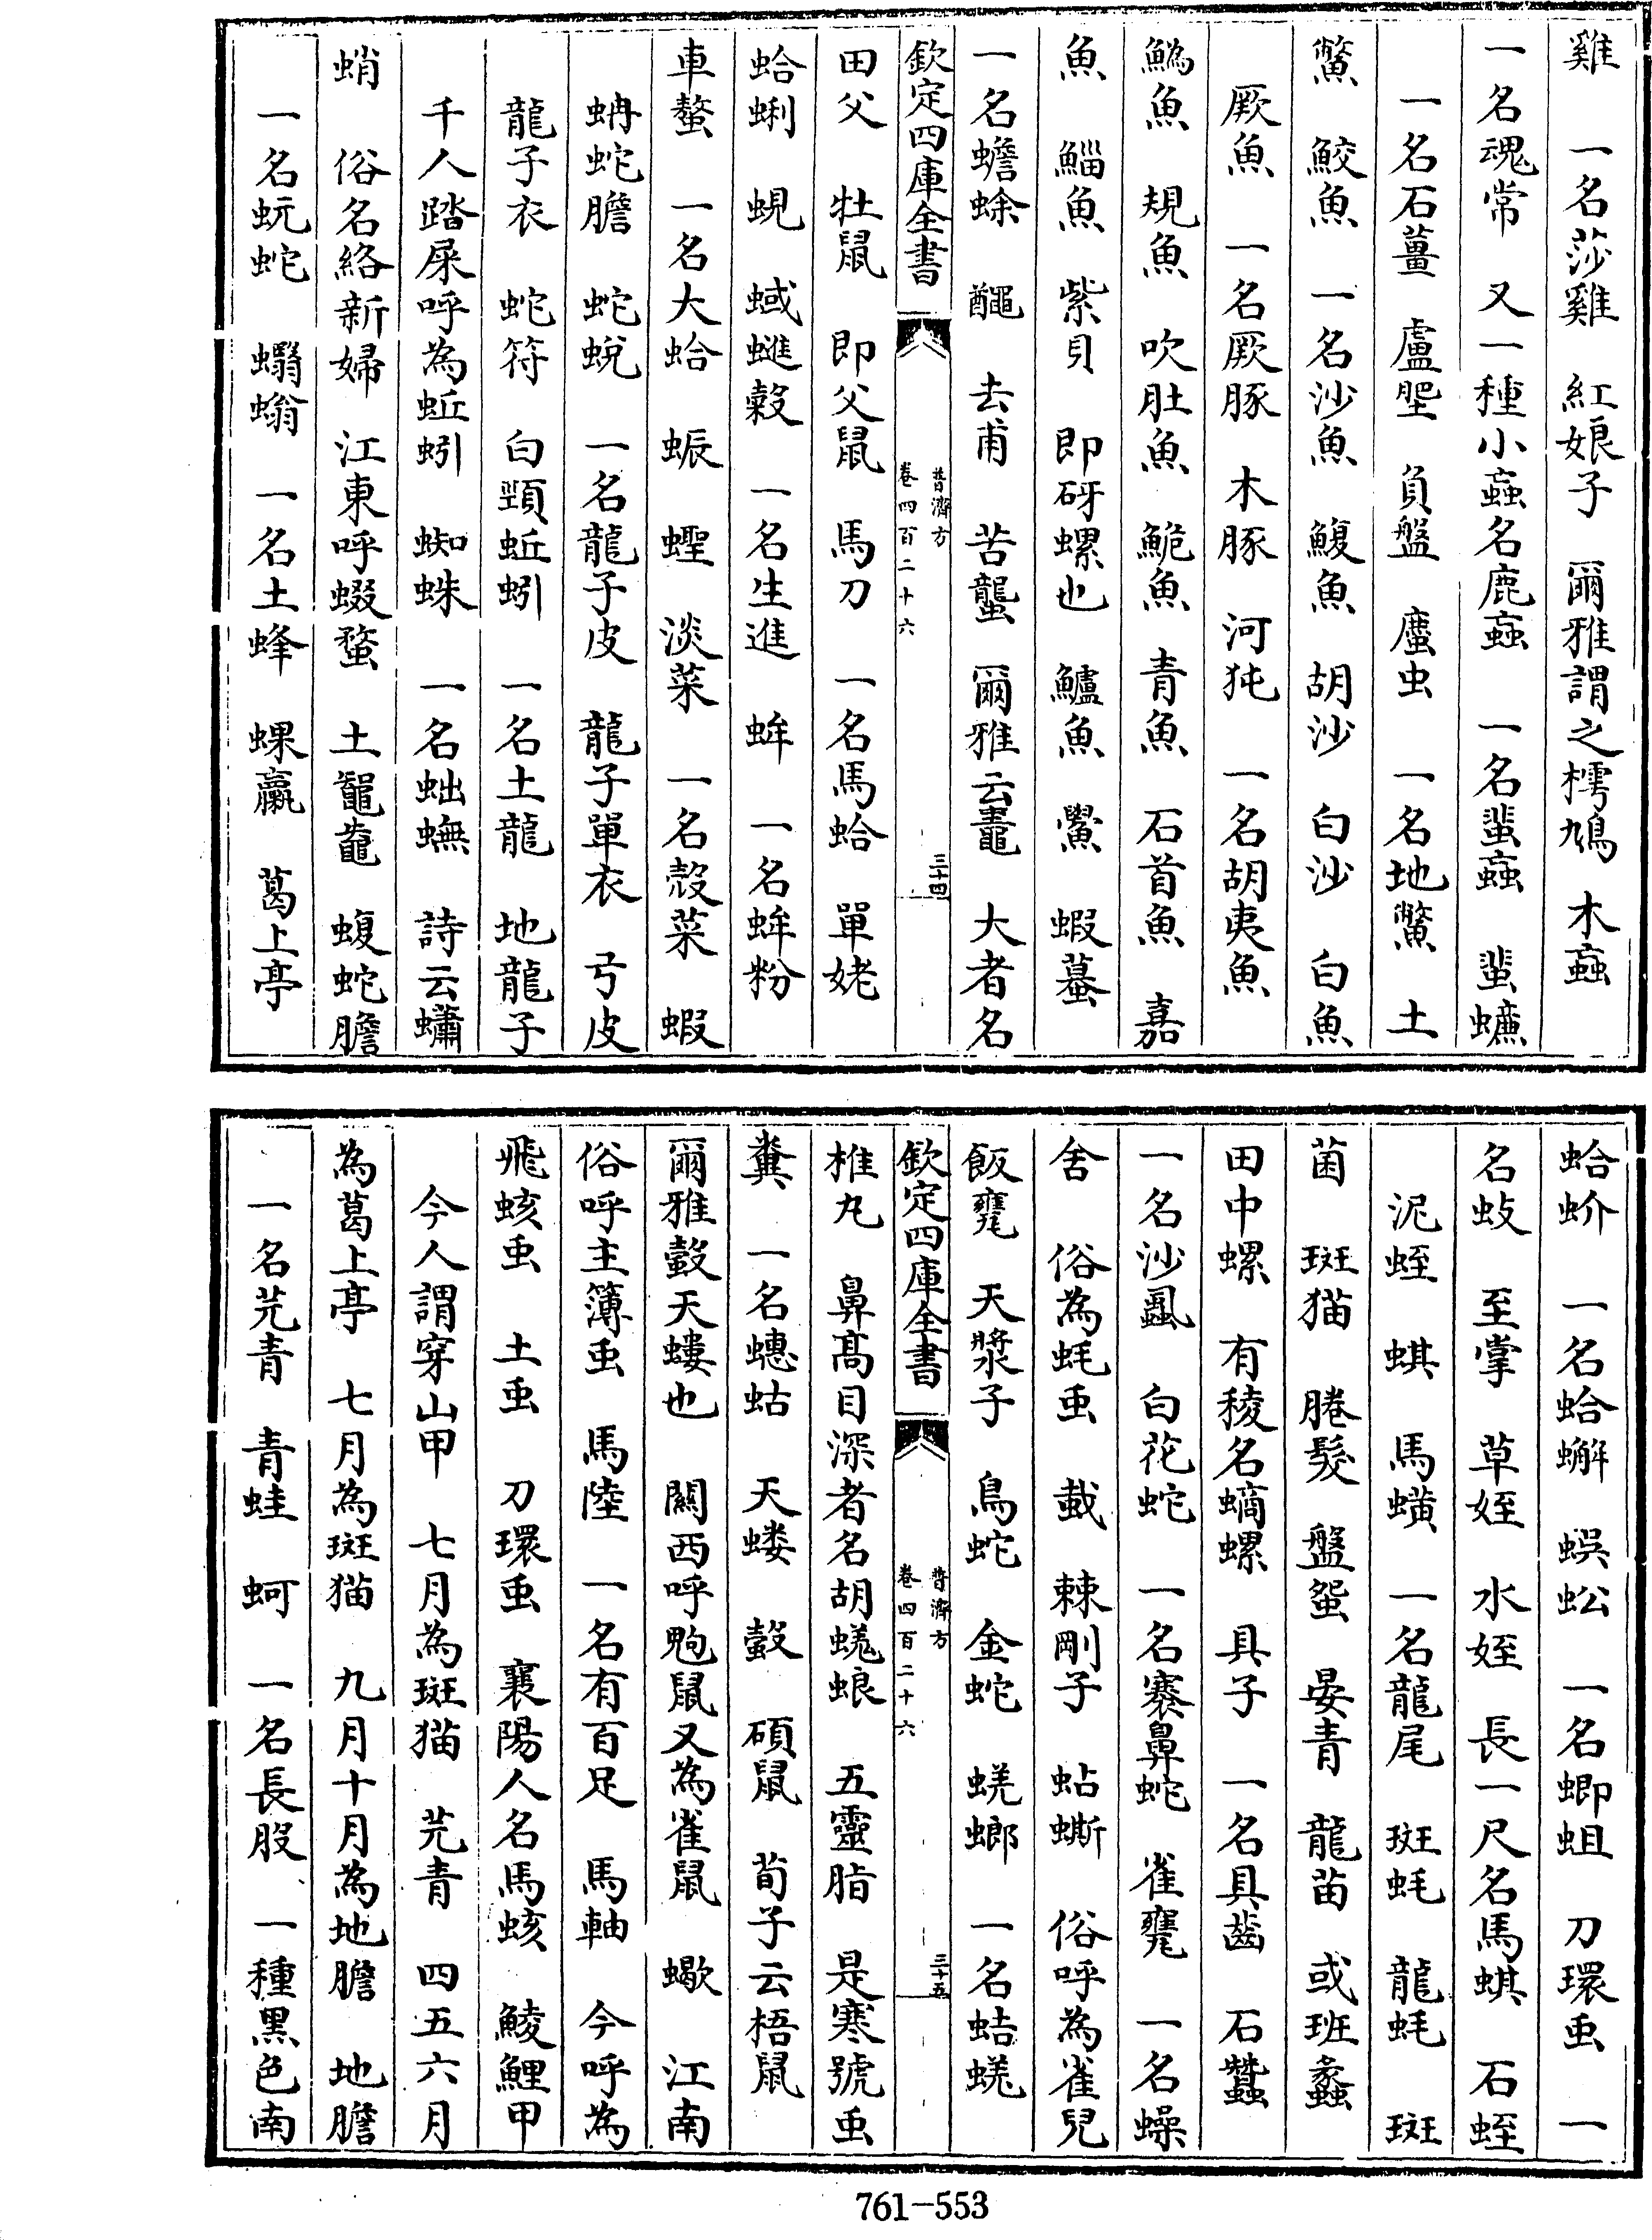 雞　一名莎雞　紅娘子　爾雅謂之樗鳩　木蝱
一名魂常　又一種小蝱名鹿蝱　一名蜚蝱　蜚蠊
一名石薑　盧蜰　負盤　䗪虫　一名地鱉　土
鱉　鮫魚　一名沙魚　鰒魚　胡沙　白沙　白魚
鱖魚　一名鱖豚　木豚　河㹠　一名胡夷魚
鰞魚　規魚　吹肚魚　鮠魚　青魚　石首魚　嘉
魚　鯔魚　紫貝　即砑螺也　鱸魚　鱟　蝦蟇
一名蟾蜍　䵸　去甫　苦蠪　爾雅云鼃　大者名
欽定四庫全書　普濟方　卷四百二十六　三十四
田父　牡鼠　即父鼠　馬刀　一名馬蛤　單姥
蛤蜊　蜆　蜮蜼縠　一名生進　蛑　一名蛑粉
車螯　一名大蛤　蜄　蟶　淡菜　一名殼菜　蝦
蚺蛇膽　蛇蛻　一名龍子皮　龍子單衣　弓皮
龍子衣　蛇符　白頸蚯蚓　一名土龍　地龍子
千人踏屎呼為蚯蚓　蜘蛛　一名蚍蟱　詩云蠨
蛸　俗名絡新婦　江東呼蝃蝥　土鼅鼄　蝮蛇膽
一名蚖蛇　蠮螉　一名土蜂　蜾蠃　葛上亭
蛤蚧　一名蛤蠏　蜈蚣　一名蝍蛆　刀環䖝　一
名蚑　至掌　草蛭　水蛭　長一尺名馬蜞　石蛭
泥蛭　蜞　馬蟥　一名龍尾　斑蚝　龍蚝　斑
菌　斑猫　腃髮　盤蛩　晏青　龍苗　或班蝥
田中螺　有稜名螪螺　具子　一名具齒　石蠶
一名沙蝨　白花蛇　一名褰鼻蛇　雀甕　一名蠂
舍　俗為蚝䖝　䖣　棘剛子　蛅蟖　俗呼為雀兒
飯甕　天漿子　烏蛇　金蛇　蜣螂　一名蛣蜣
欽定四庫全書　普濟方　卷四百二十六　三十五
椎丸　鼻高目深者名胡蜣蜋　五靈脂　是寒號䖝
糞　一名蟪蛄　天螻　蟹　碩鼠　荀子云梧鼠
爾雅蟹天螻也　關西呼鼩鼠又為雀鼠　蠍　江南
俗呼主簿䖝　馬陸　一名有百足　馬軸　今呼為
飛蚿䖝　土䖝　刀環䖝　襄陽人名馬蚿　鯪鯉甲
今人謂穿山甲　七月為斑猫　芫青　四五六月
為葛上亭　七月為斑猫　九月十月為地膽　地膽
一名芫青　青蛙　蚵　一名長股　一種黑色南
761-553